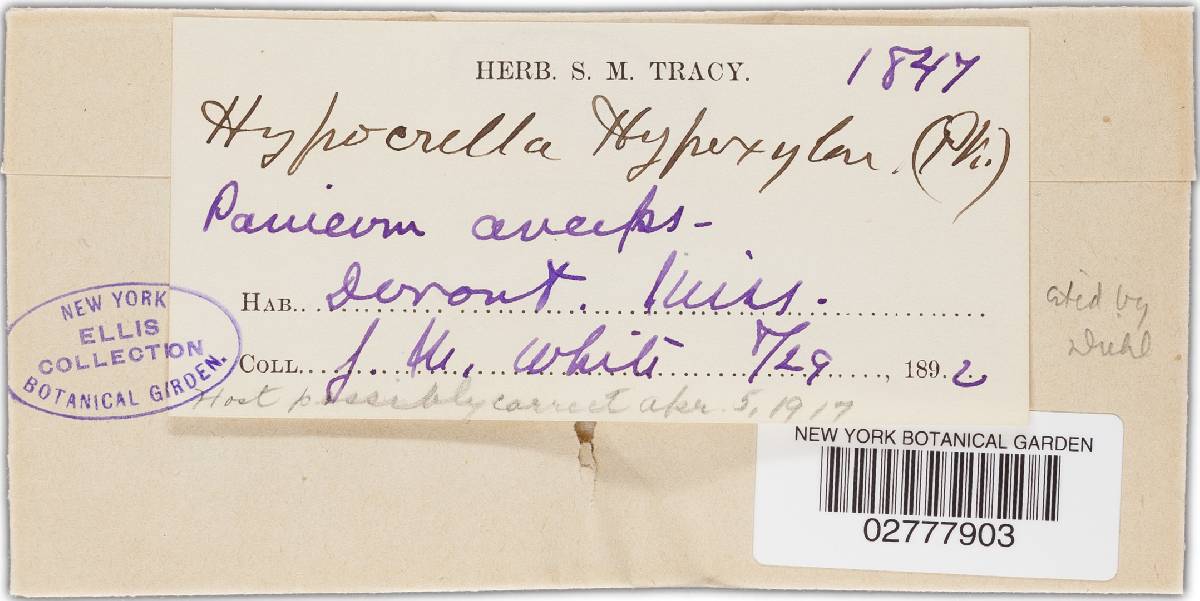 HERB. S. M. TRACY. 1847
Hypocrella Hypoxylon (Pk.)
Panicum anceps -
HAB. Miss.
COLL. J. M. White 8/29, 1892
Host possibly correct apr. 5, 1917
NEW YORK
ELLIS
COLLECTION
BOTANICAL GARDEN.
cited by
Diehl
NEW YORK BOTANICAL GARDEN
02777903